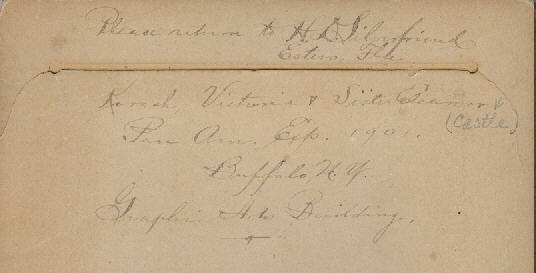 Please return to H. D. Silverfriend
Estero, Fla.
Koresh, Victoria & Sister Eleanor
(Castle)
Pan Am. Exp. 1901.
Buffalo N.Y.
Graphic Arts Building.